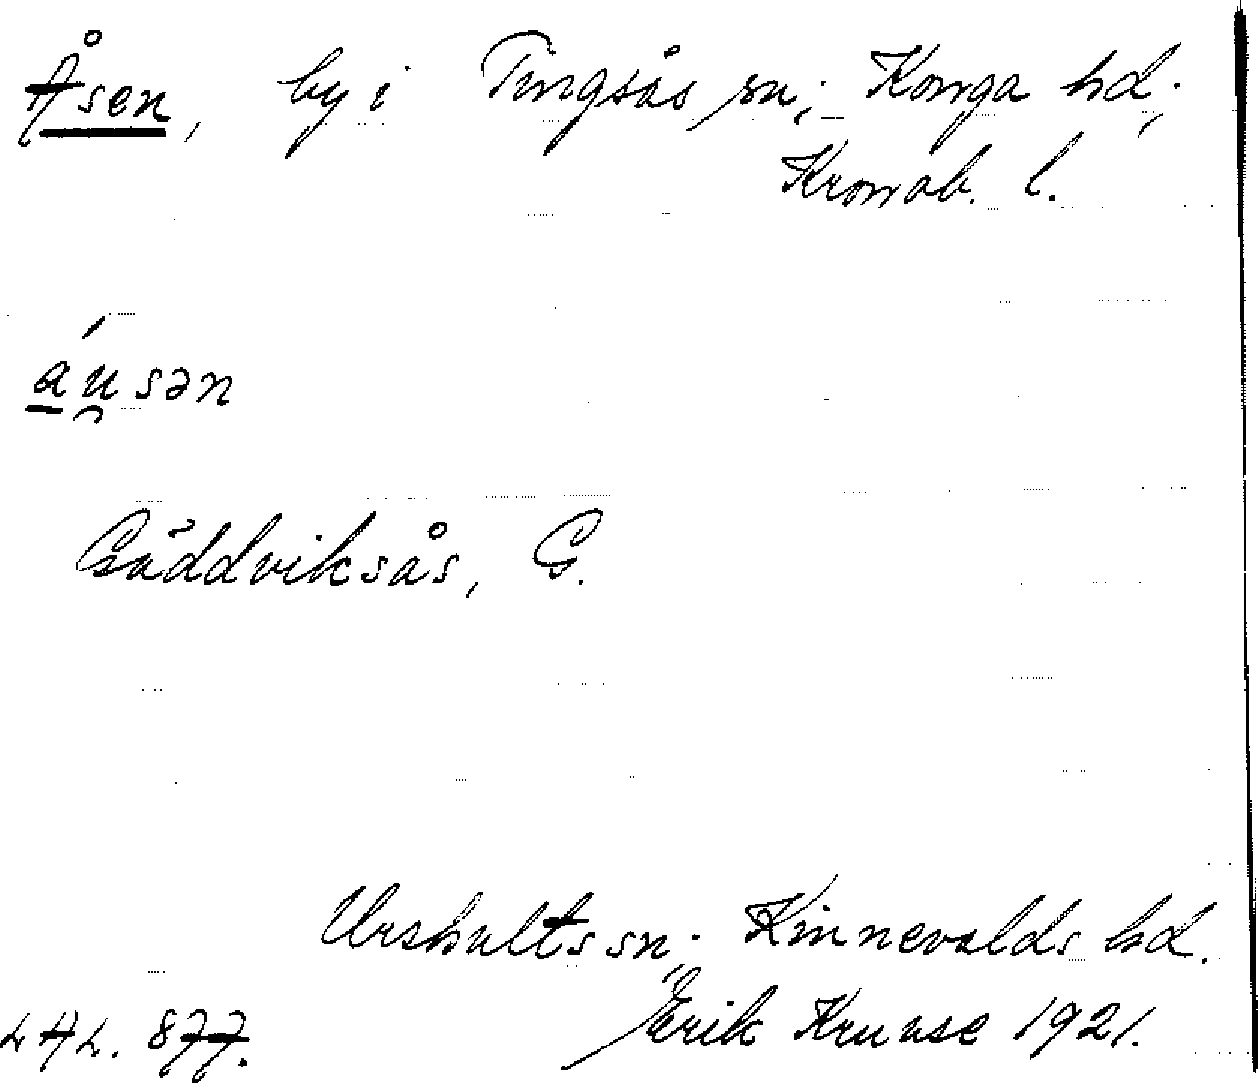 Åsen, by i Tingsås sn; Konga hd;
Kronob. l.
áu̯sən
Gäddviksås, G.
Urshults sn; Kinnevalds hd.
LAL. 877. Erik Kruuse 1921.